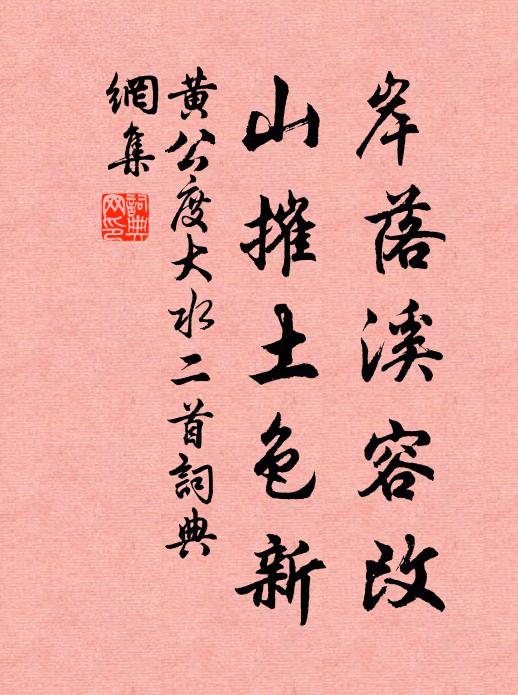 岸落溪容改
山摧土色新
黄公度大水二首詞典
網集
詞典
网印